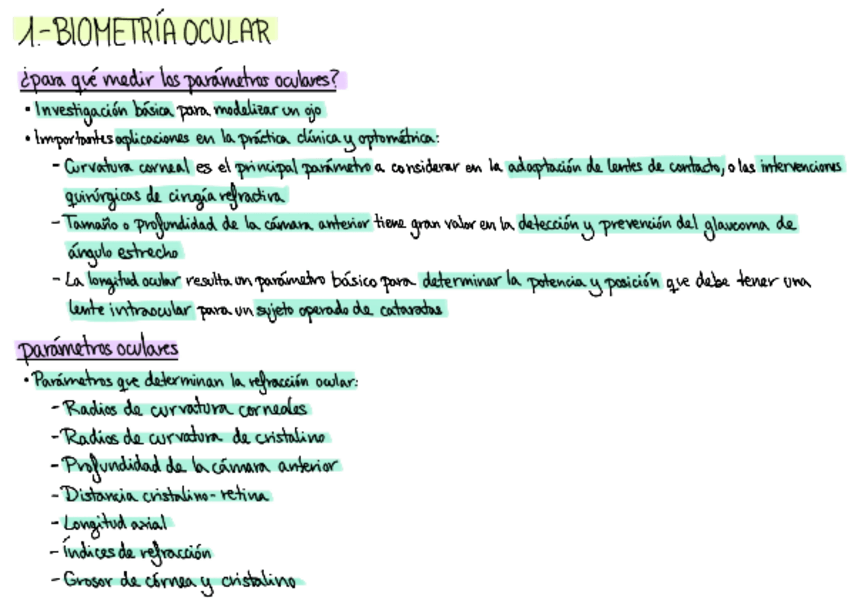 1.-BIOMETRÍA OCULAR
¿para qué medir los parámetros oculares?
• Investigación básica para modelizar un ojo
• Importantes aplicaciones en la práctica clínica y optométrica:
- Curvatura corneal es el principal parámetro a considerar en la adaptación de lentes de contacto, o las intervenciones
quirúrgicas de cirugía refractiva
- Tamaño o profundidad de la cámara anterior tiene gran valor en la detección y prevención del glaucoma de
ángulo estrecho
- La longitud ocular resulta un parámetro básico para determinar la potencia y posición que debe tener una
lente intraocular para un sujeto operado de cataratas
parámetros oculares
• Parámetros que determinan la refracción ocular:
- Radios de curvatura corneales
- Radios de curvatura de cristalino
- Profundidad de la cámara anterior
- Distancia cristalino-retina
- Longitud axial
- Índices de refracción
- Grosor de córnea y cristalino